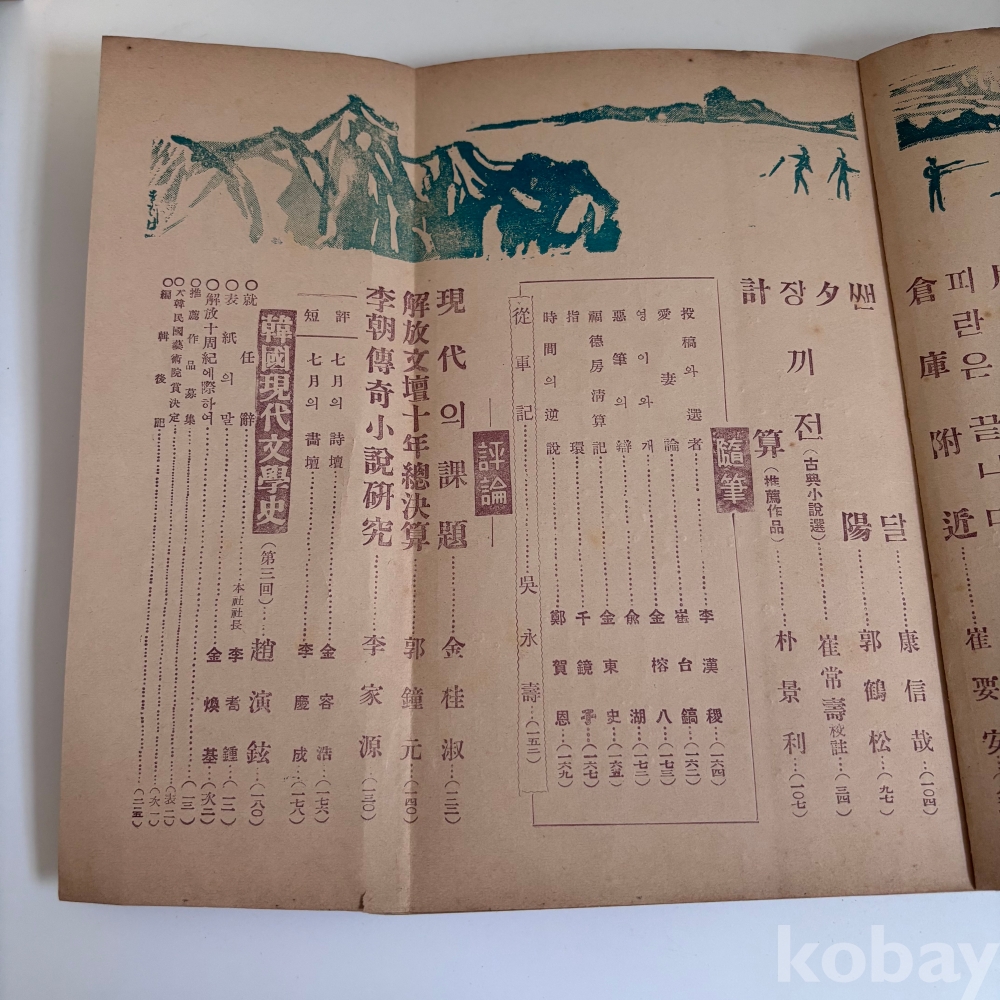 피란은 끝나
倉庫附近……崔要安
쌘달……康信哉…(一〇四)
夕陽……郭鶴松…(九七)
장끼전(古典小說選)……崔常壽校註…(三四)
計算(推薦作品)……朴景利…(一〇七)
隨筆
投稿와 選者……李漢稷…(一六四)
愛妻論……崔台鎬…(一六二)
영이와 개……金榕八…(一七三)
惡筆의 辯……兪湖…(一七二)
福德房淸算記……金東史…(一六五)
指環……千鏡子…(一六七)
時間의 逆說……鄭賀恩…(一六九)
從軍記……吳永壽…(一五二)
評論
現代의 課題……金桂淑…(一二三)
解放文壇十年總決算……郭鐘元…(一四〇)
李朝傳奇小說硏究……李家源…(一三〇)
短評
七月의 詩壇……金容浩…(一七六)
七月의 畵壇……李慶成…(一七八)
韓國現代文學史(第三回)……趙演鉉…(一八〇)
○就任辭……本社社長 李耉鍾…(一二)
○表紙의 말……金煥基…(次二)
○解放十周紀에際하여……(一三)
○推薦作品募集……(表二)
○大韓民國藝術院賞決定……(次一)
○編輯後記……(二一五)
kobay